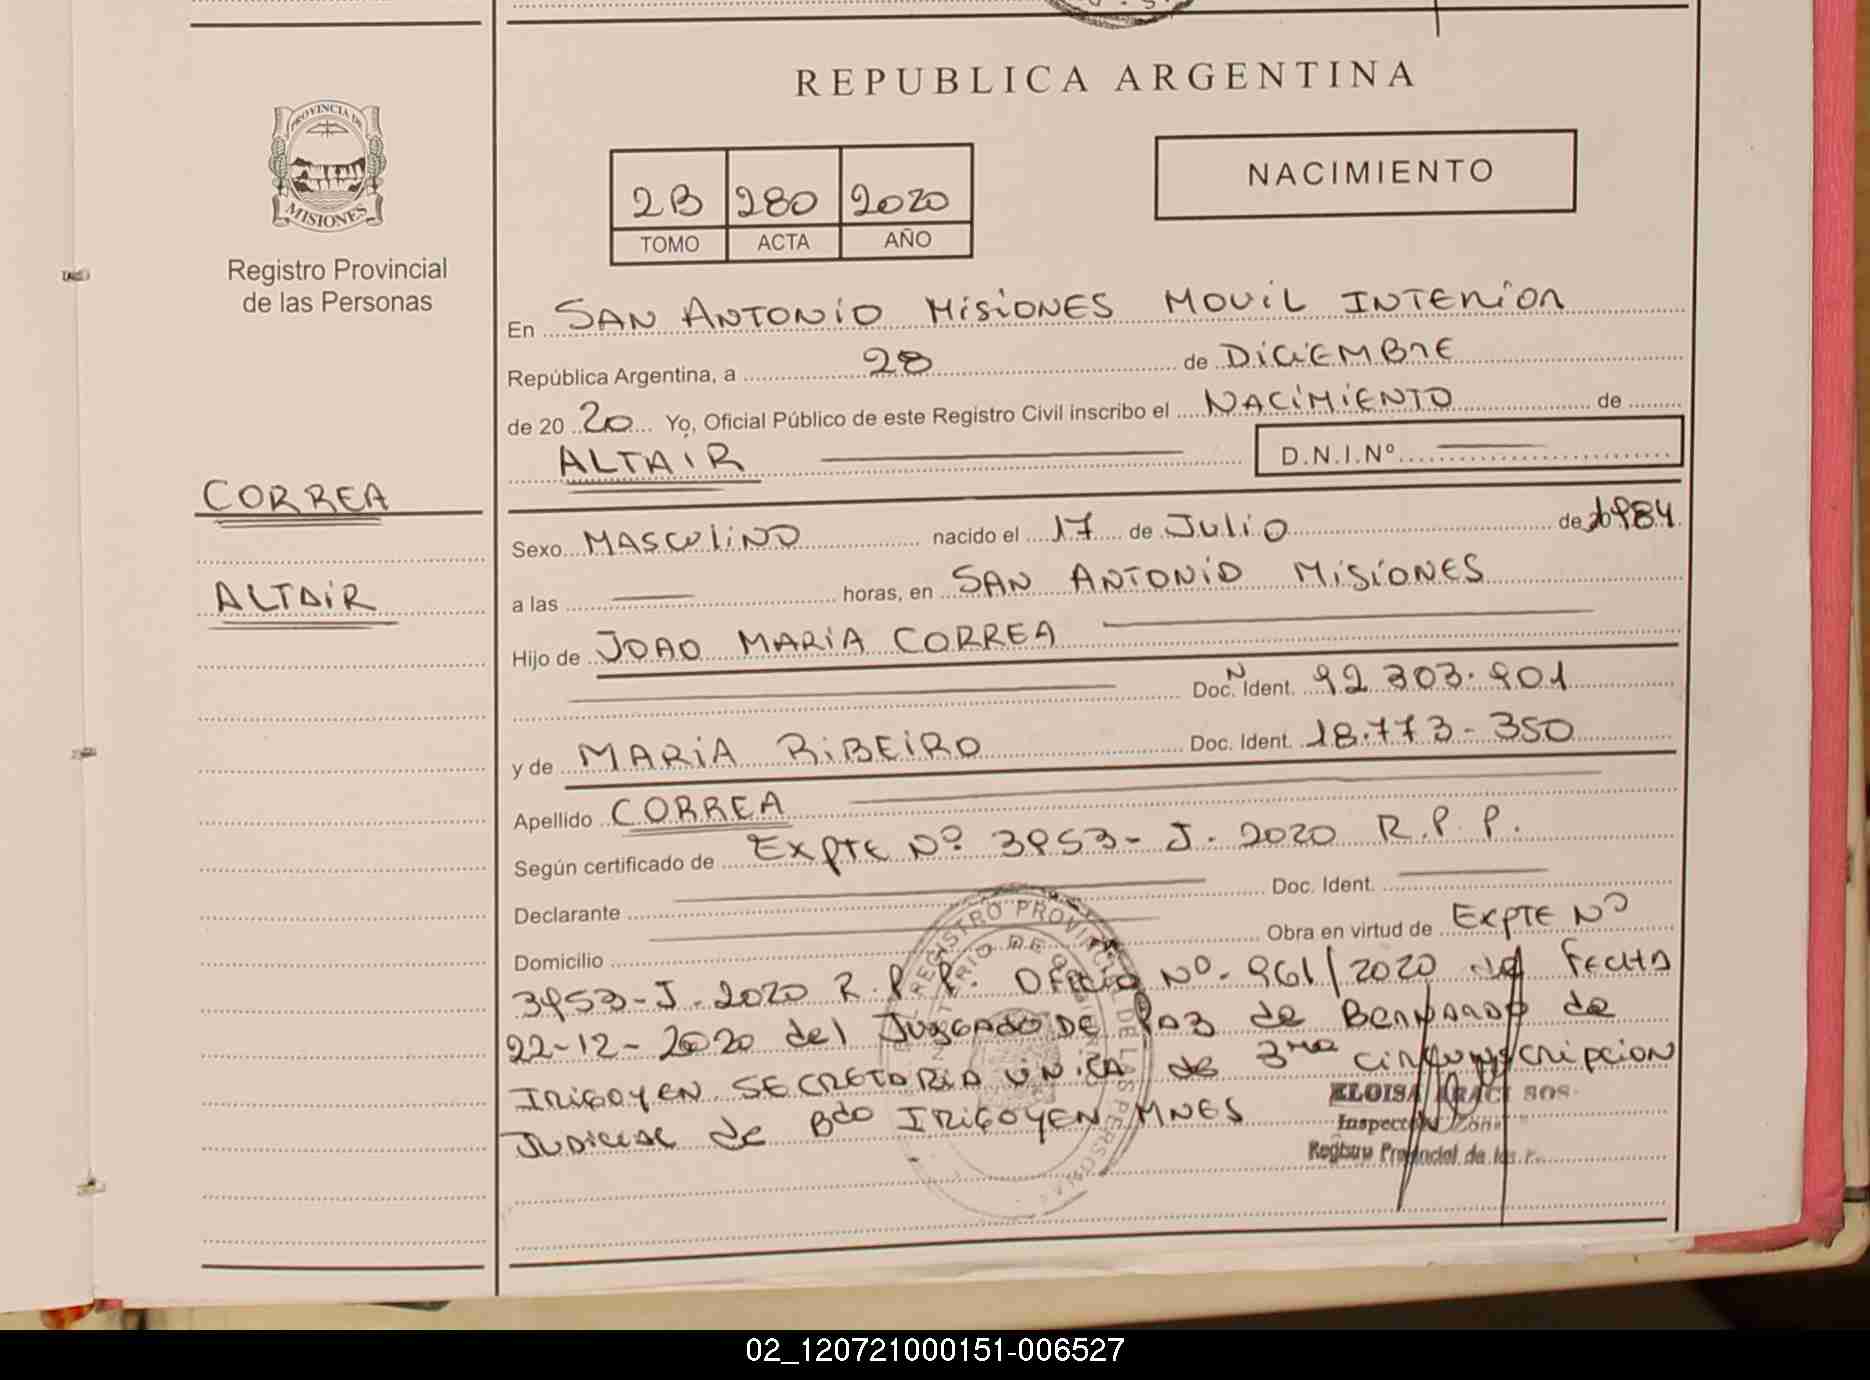 REPUBLICA ARGENTINA
PROVINCIA DE
MISIONES
Registro Provincial
de las Personas
2B 280 2020
TOMO ACTA AÑO
NACIMIENTO
En SAN ANTONIO MISIONES MOVIL INTERIOR
República Argentina, a 28 de DICIEMBRE
de 20 20 Yo, Oficial Público de este Registro Civil inscribo el NACIMIENTO de
ALTAIR D.N.I.Nº
CORREA
ALTAIR
Sexo MASCULINO nacido el 17 de JULIO de 1984
a las horas, en SAN ANTONIO MISIONES
Hijo de JOAO MARIA CORREA
Doc. N Ident. 92.303.901
y de MARIA RIBEIRO Doc. Ident. 18.773-350
Apellido CORREA
Según certificado de EXPTE Nº 3953-J-2020 R.P.P.
Declarante Doc. Ident.
Domicilio Obra en virtud de EXPTE Nº
3953-J-2020 R.P.P. OFICIO Nº 961/2020 de FECHA
22-12-2020 del JUZGADO DE PAZ de BERNARDO de
IRIGOYEN SECRETARIA UNICA de 3ra CIRCUNSCRIPCION
JUDICIAL de Bdo IRIGOYEN MNES
ELOISA ARACI
Registro Provincial de las
REGISTRO PROVINCIAL DE LAS PERSONAS
02_120721000151-006527